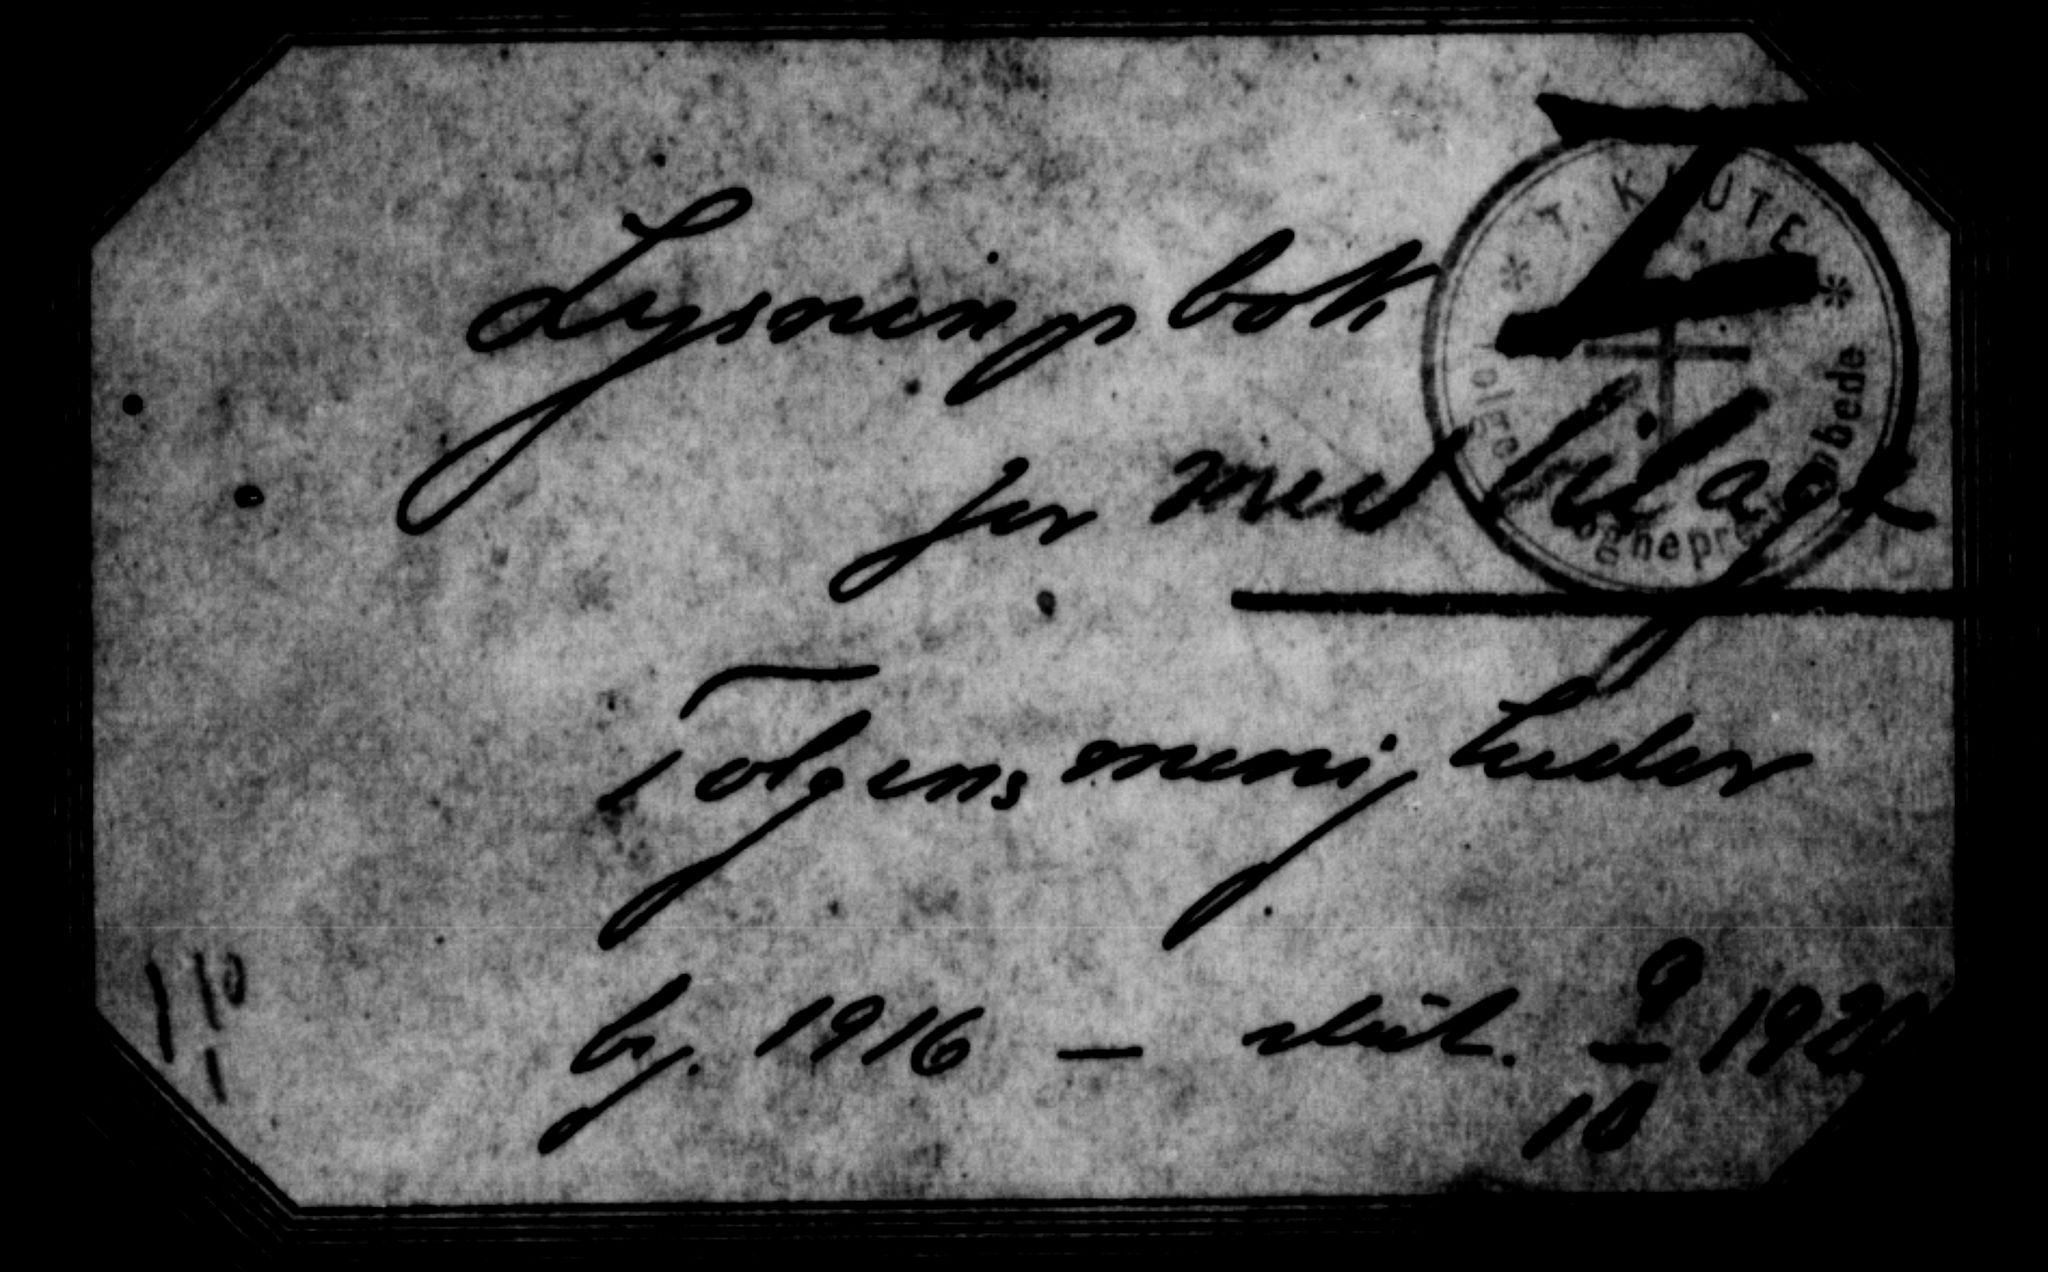 Lysningsbok
for med bilag
Tolgens menigheder
bg. 1916 — slut. 9/10 1920
T. KNUTE
Tolgen Sogneprestembede